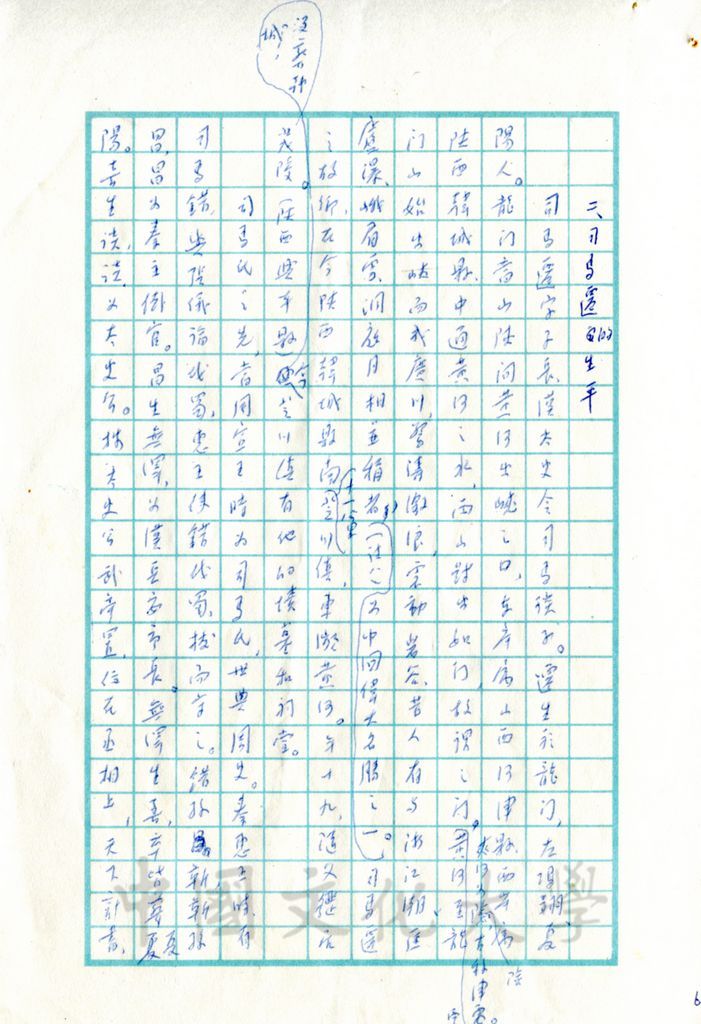 二、司馬遷的生平
司馬遷字子長，漢太史令司馬談子。遷生於龍門，左馮翊夏
陽人。龍門音山陸間黃河出峽之口，東岸屬山西河津縣，西岸屬
陝西韓城縣。中通黃河之水，西山對出如門，故謂之門。黃河至龍
門山始出峽而成廣川，驚濤激浪，震動岩谷，昔人有與浙江潮匡
廬瀑、峨眉雲、洞庭月相並稱者，(註八)為中國偉大名勝之一。司馬遷
之故鄉，在今陝西韓城縣南芝川鎮，東濱黃河。年十九，隨父徙居
茂陵。陝西興平縣 今芝川鎮有他的墳墓和祠堂。
司馬氏之先，當周宣王時為司馬氏，世典周史。秦惠王時有
司馬錯，與張儀論伐蜀，惠王使錯伐蜀，拔而守之。錯孫靳，靳孫
昌，昌為秦主鐵官。昌生無澤，為漢長安市長。無澤生喜，卒皆葬夏
陽。喜生談，談為太史公。按太史公武帝置，位在丞相上，天下計書，
十一里
中國文化大學
6